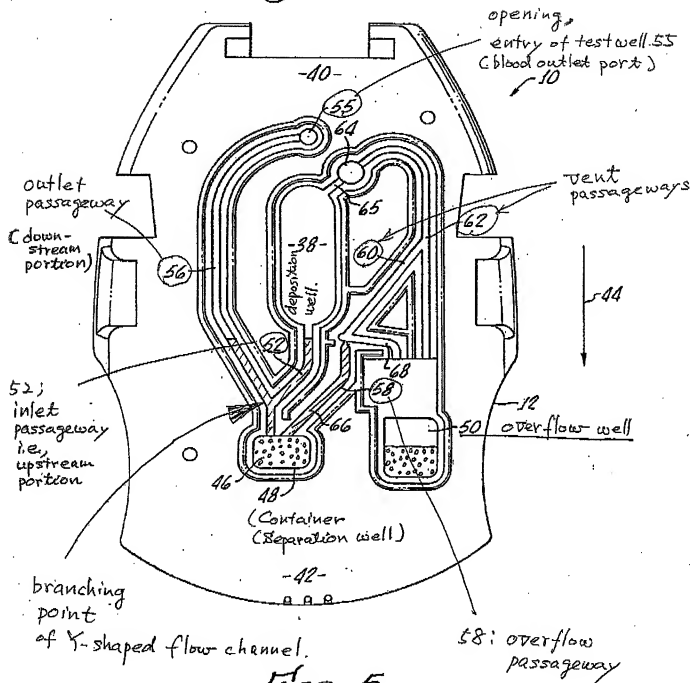 opening,
entry of test well 55
(blood outlet port)
-40-
10
55
64
outlet
passageway
(down-
stream
portion)
65
vent
passageways
62
-38-
60
56
deposition
well.
44
52
52;
inlet
passageway
i.e.,
upstream
portion
68
58
12
50 overflow well
66
46
48
(Container
(Separation well)
-42-
branching
point
of Y-shaped flow channel.
58: overflow
passageway